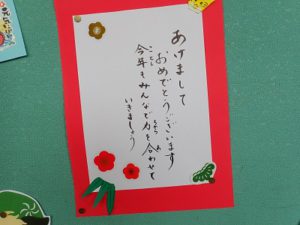 あけまして
おめでとうございます
今年もみんなで力を合わせて
いきましょう